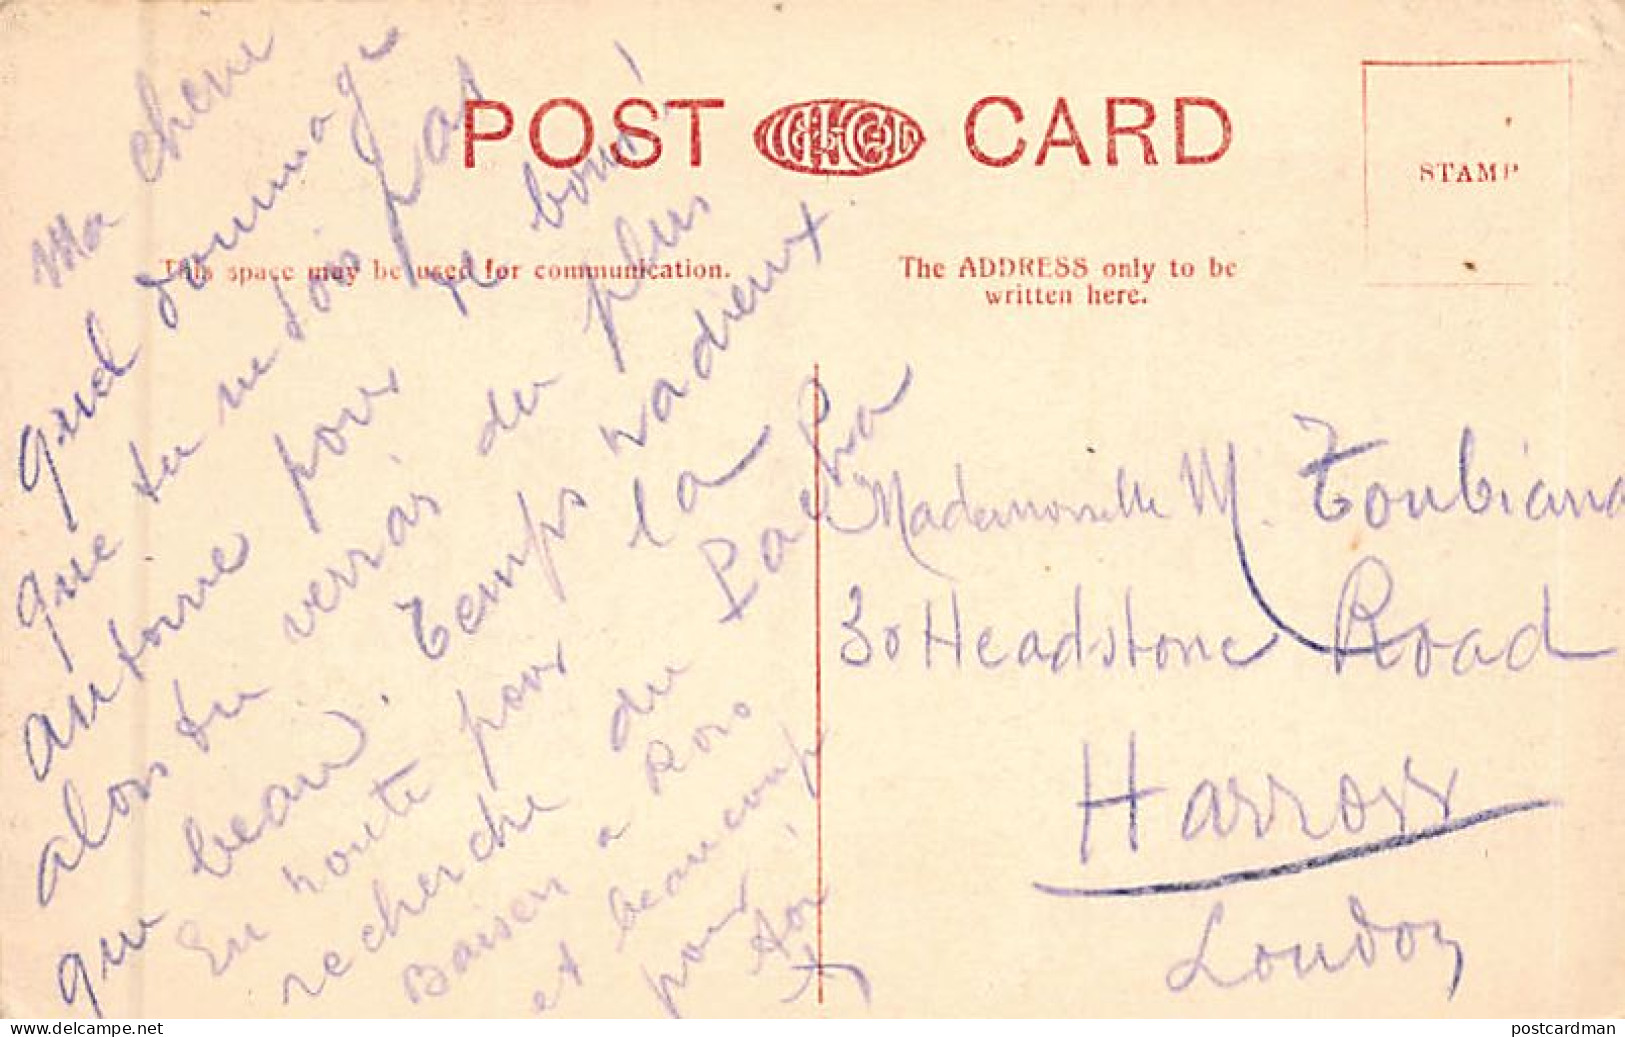 POST CARD
STAMP
This space may be used for communication.
The ADDRESS only to be
written here.
Ma chérie
quel dommage
que tu ne sois pas
alors tu verras du plus
que beau. Temps radieux
En route pour la
recherche du Pacha
Baisers a
et beaucoup
pour toi
Mademoiselle M. Toubiana
30 Headstone Road
Harrow
London
website-delcampe.net
postcardman